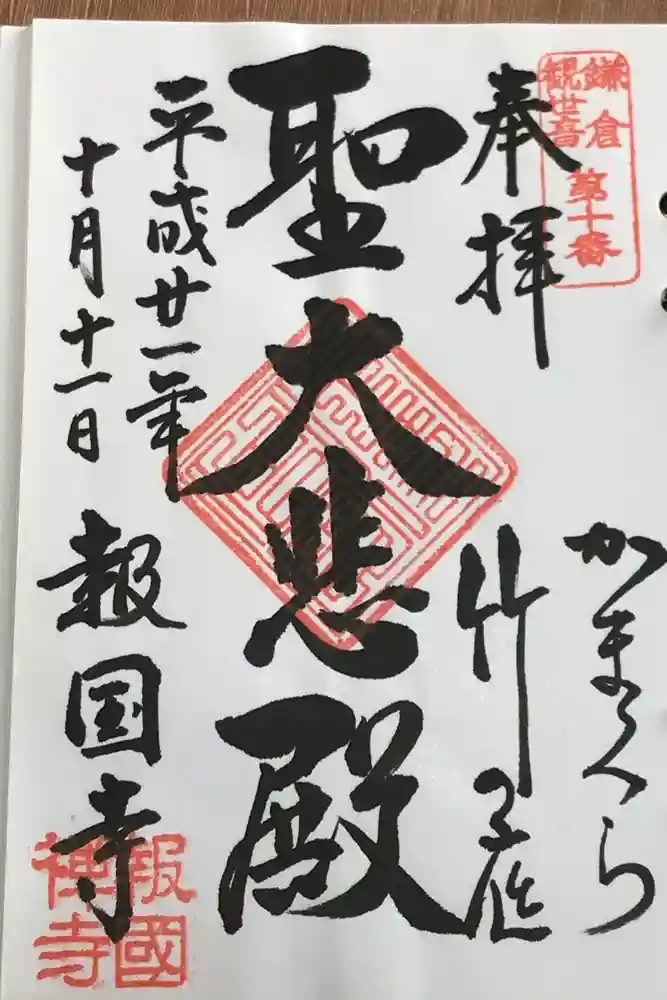 鎌倉
観世音
第十番
奉拝
かまくら
竹の庭
聖大悲殿
平成廿一年
十月十一日
報国寺
報國
禅寺